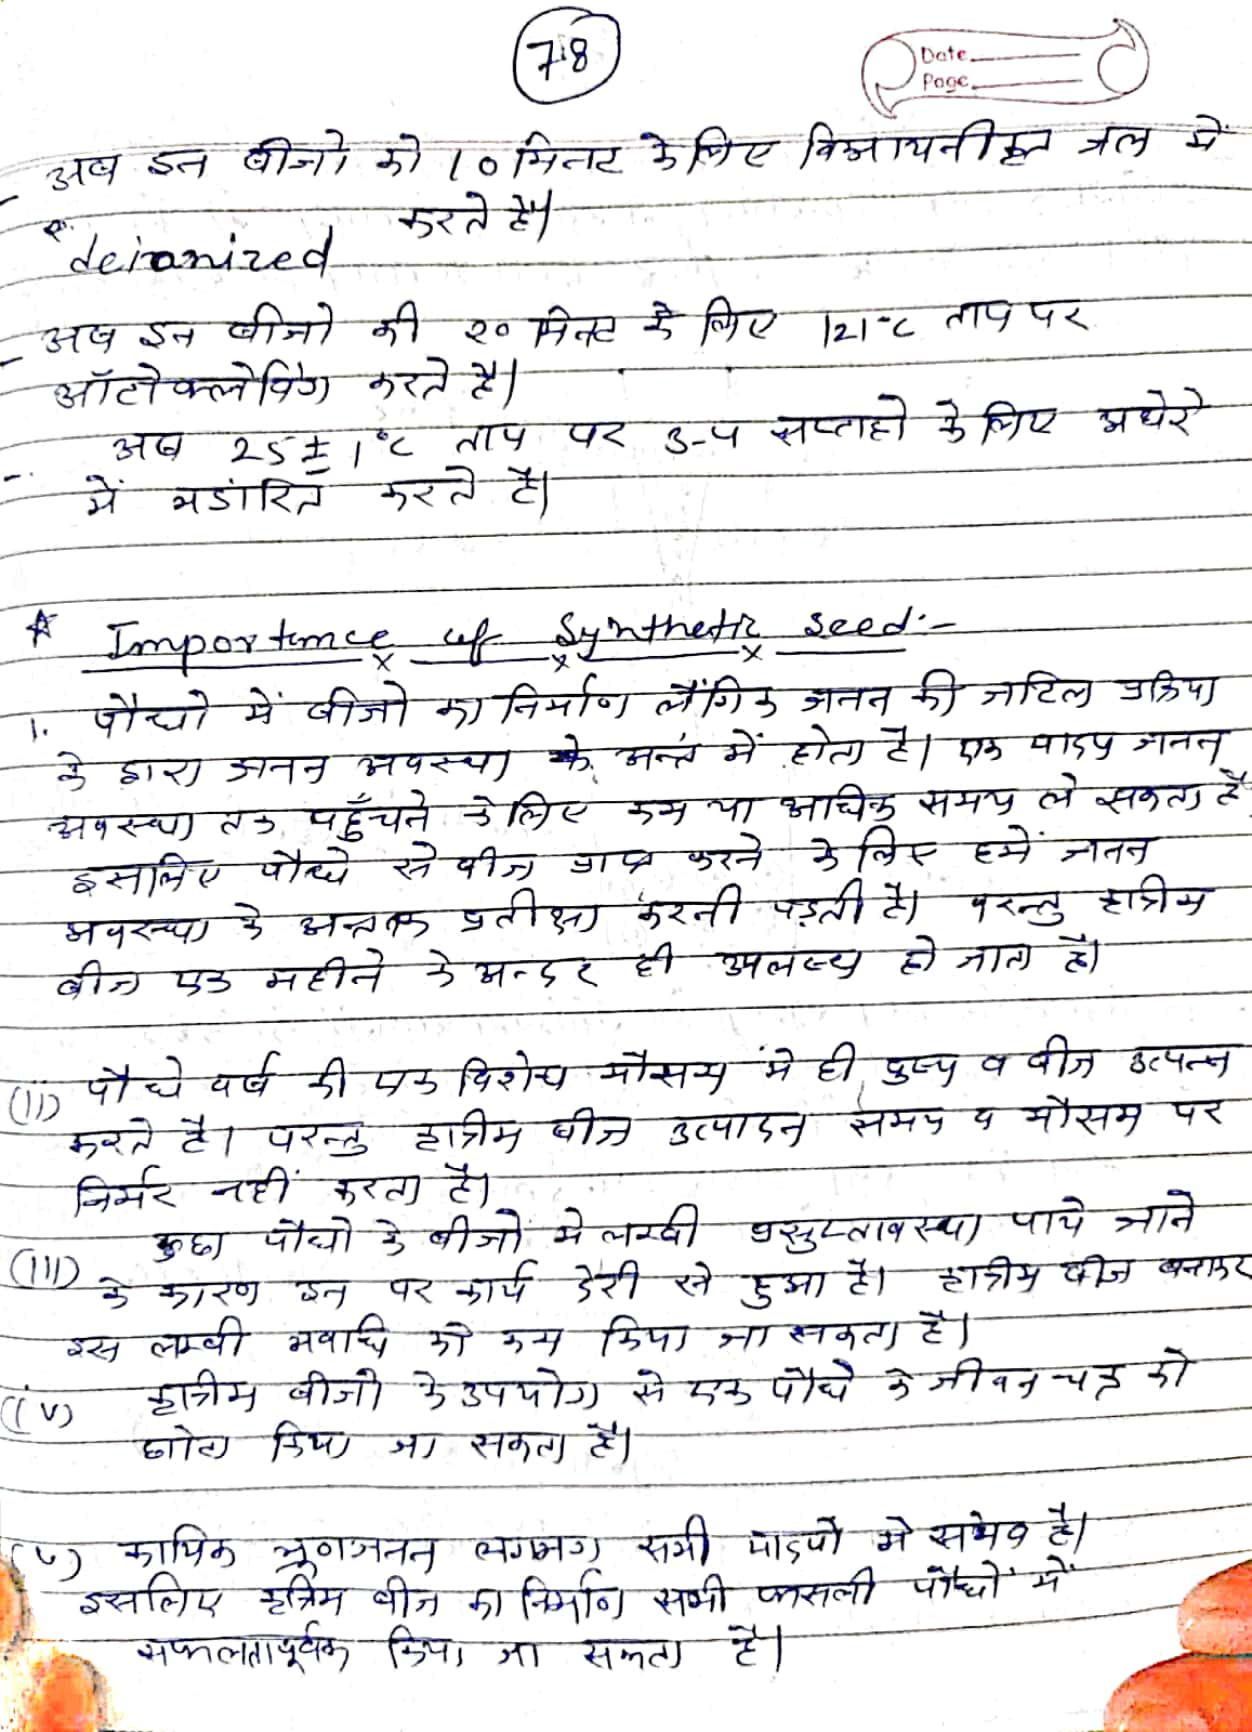 78
Date
Page
अब इन बीजो को 10 मिनट के लिए विआयनीकृत जल में
करते है।
deionized
अब इन बीजो की 20 मिनट के लिए 121°C ताप पर
ऑटोक्लेविंग करते है।
अब 25 ± 1°C ताप पर 3-4 सप्ताहो के लिए अधेरे
में भडांरित करते है।
☆ Importance of Synthetic seed:-
1. पौधो में बीजो का निर्माण लैंगिक जनन की जटिल प्रक्रिया
के द्वारा जनन अवस्था के अन्त में होता है। एक पादप जनन
अवस्था तक पहुँचने के लिए कम या अधिक समय ले सकता है
इसलिए पौधे से बीज प्राप्त करने के लिए हमें जनन
अवस्था के अन्त तक प्रतीक्षा करनी पड़ती है। परन्तु कृत्रिम
बीज एक महीने के अन्दर ही उपलब्ध हो जाता है।
(ii) पौधे वर्ष की एक विशेष मौसम में ही पुष्प व बीज उत्पन्न
करते है। परन्तु कृत्रिम बीज उत्पादन समय व मौसम पर
निर्भर नहीं करता है।
(iii) कुछ पौधो के बीजों मे लम्बी प्रसुप्तावस्था पाये जाने
के कारण इन पर कार्य देरी से हुआ है। कृत्रिम बीज बनाकर
इस लम्बी अवधि को कम किया जा सकता है।
(iv) कृत्रिम बीजो के उपयोग से एक पौधे के जीवन चक्र को
छोटा किया जा सकता है।
(v) कायिक भ्रूणजनन लगभग सभी पादपो मे संभव है।
इसलिए कृत्रिम बीज का निर्माण सभी फसली पौधों में
सफलतापूर्वक किया जा सकता है।